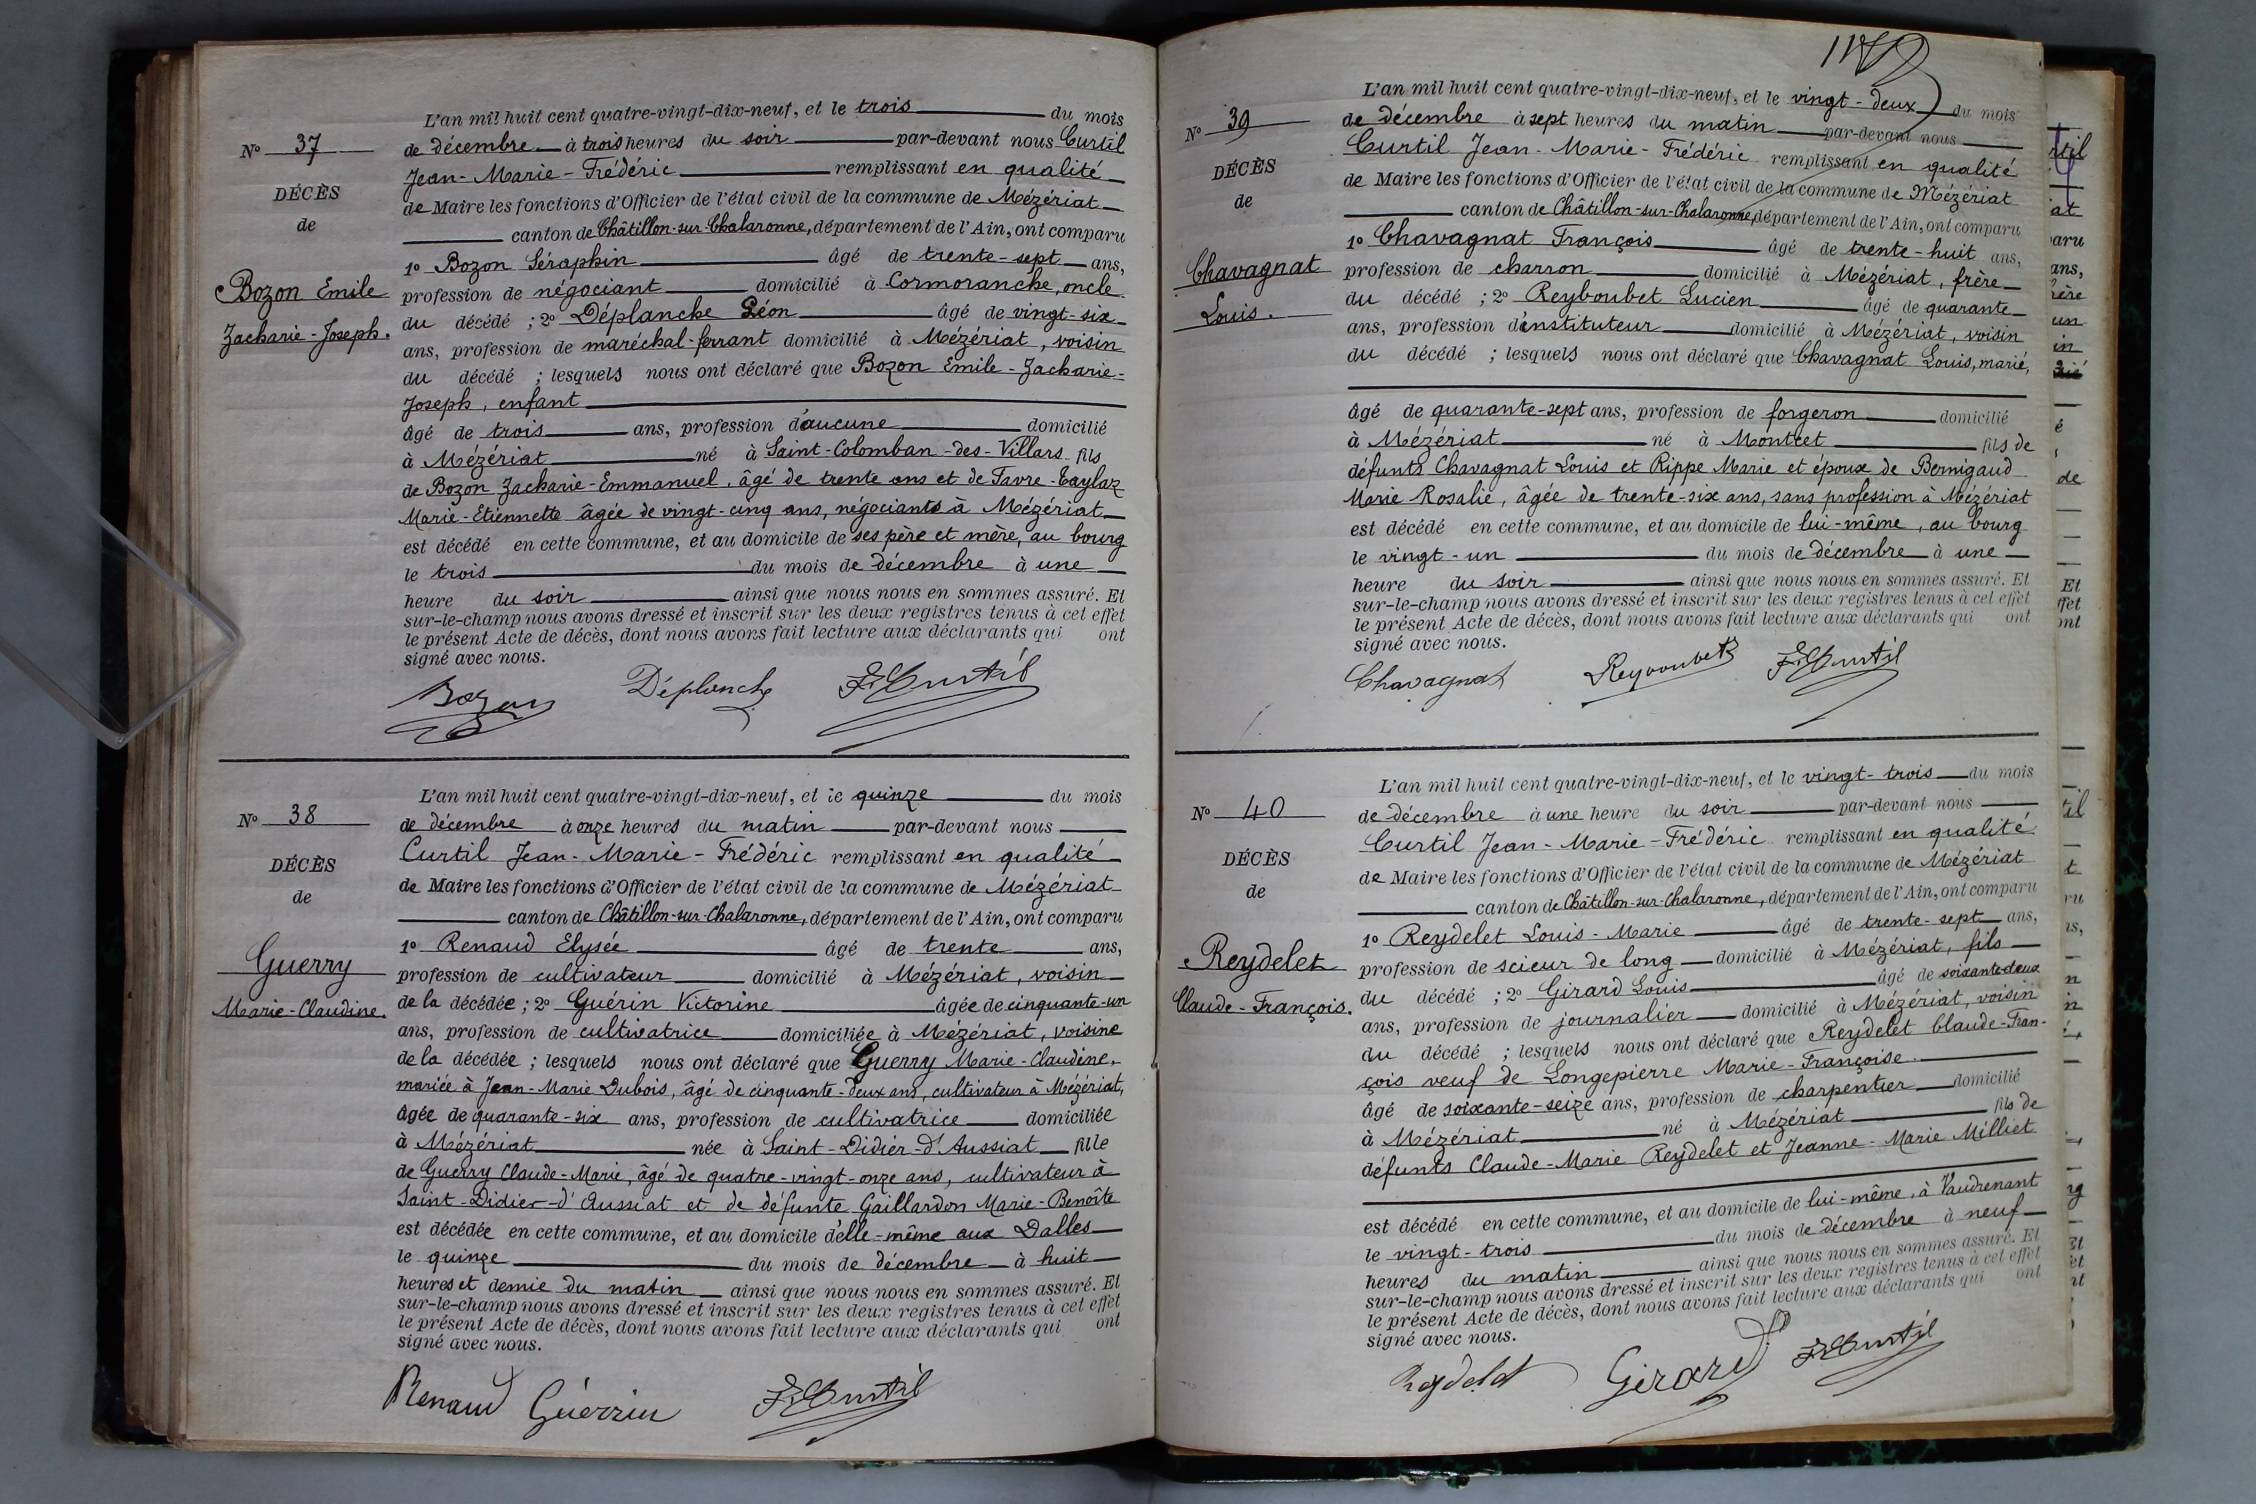 L'an mil huit cent quatre-vingt-dix-neuf, et le trois du mois
No 37
de décembre à trois heures du soir par-devant nous Curtil
Jean-Marie-Frédéric remplissant en qualité
DÉCÈS
de Maire les fonctions d'Officier de l'état civil de la commune de Mézériat
de
canton de Châtillon-sur-Chalaronne, département de l'Ain, ont comparu
1o Bozon Séraphin âgé de trente-sept ans,
Bozon Emile
profession de négociant domicilié à Cormoranche, oncle
Zacharie-Joseph.
du décédé ; 2o Déplanche Léon âgé de vingt-six
ans, profession de maréchal-ferrant domicilié à Mézériat, voisin
du décédé ; lesquels nous ont déclaré que Bozon Emile-Zacharie-
Joseph, enfant
âgé de trois ans, profession d'aucune domicilié
à Mézériat né à Saint-Colomban-des-Villars fils
de Bozon Zacharie-Emmanuel, âgé de trente ans et de Favre-Taylaz
Marie-Etiennette âgée de vingt-cinq ans, négociants à Mézériat
est décédé en cette commune, et au domicile de ses père et mère, au bourg
le trois du mois de décembre à une
heure du soir ainsi que nous nous en sommes assuré. Et
sur-le-champ nous avons dressé et inscrit sur les deux registres tenus à cet effet
le présent Acte de décès, dont nous avons fait lecture aux déclarants qui ont
signé avec nous.
Bozon Déplanche F. Curtil
L'an mil huit cent quatre-vingt-dix-neuf, et le quinze du mois
No 38
de décembre à onze heures du matin par-devant nous
Curtil Jean-Marie-Frédéric remplissant en qualité
DÉCÈS
de Maire les fonctions d'Officier de l'état civil de la commune de Mézériat
de
canton de Châtillon-sur-Chalaronne, département de l'Ain, ont comparu
1o Renaud Elysée âgé de trente ans,
Guerry
profession de cultivateur domicilié à Mézériat, voisin
Marie-Claudine.
de la décédée ; 2o Guérin Victorine âgée de cinquante-un
ans, profession de cultivatrice domiciliée à Mézériat, voisine
de la décédée ; lesquels nous ont déclaré que Guerry Marie-Claudine,
mariée à Jean-Marie Dubois, âgé de cinquante-deux ans, cultivateur à Mézériat,
âgée de quarante-six ans, profession de cultivatrice domiciliée
à Mézériat née à Saint-Didier-d'Aussiat fille
de Guerry Claude-Marie, âgé de quatre-vingt-onze ans, cultivateur à
Saint-Didier-d'Aussiat et de défunte Gaillardon Marie-Benoîte
est décédée en cette commune, et au domicile d'elle-même aux Dalles
le quinze du mois de décembre à huit
heures et demie du matin ainsi que nous nous en sommes assuré. Et
sur-le-champ nous avons dressé et inscrit sur les deux registres tenus à cet effet
le présent Acte de décès, dont nous avons fait lecture aux déclarants qui ont
signé avec nous.
Renaud Guérrin F. Curtil
L'an mil huit cent quatre-vingt-dix-neuf, et le vingt-deux du mois
No 39
de décembre à sept heures du matin par-devant nous
Curtil Jean-Marie-Frédéric remplissant en qualité
DÉCÈS
de Maire les fonctions d'Officier de l'état civil de la commune de Mézériat
de
canton de Châtillon-sur-Chalaronne, département de l'Ain, ont comparu
1o Chavagnat François âgé de trente-huit ans,
Chavagnat
profession de charron domicilié à Mézériat, frère
Louis.
du décédé ; 2o Reyboubet Lucien âgé de quarante
ans, profession d'instituteur domicilié à Mézériat, voisin
du décédé ; lesquels nous ont déclaré que Chavagnat Louis, marié,
âgé de quarante-sept ans, profession de forgeron domicilié
à Mézériat né à Montcet fils de
défunts Chavagnat Louis et Rippe Marie et époux de Bernigaud
Marie Rosalie, âgée de trente-six ans, sans profession à Mézériat
est décédé en cette commune, et au domicile de lui-même, au bourg
le vingt-un du mois de décembre à une
heure du soir ainsi que nous nous en sommes assuré. Et
sur-le-champ nous avons dressé et inscrit sur les deux registres tenus à cet effet
le présent Acte de décès, dont nous avons fait lecture aux déclarants qui ont
signé avec nous.
Chavagnat Reyboubet F. Curtil
L'an mil huit cent quatre-vingt-dix-neuf, et le vingt-trois du mois
No 40
de décembre à une heure du soir par-devant nous
Curtil Jean-Marie-Frédéric remplissant en qualité
DÉCÈS
de Maire les fonctions d'Officier de l'état civil de la commune de Mézériat
de
canton de Châtillon-sur-Chalaronne, département de l'Ain, ont comparu
1o Reydelet Louis-Marie âgé de trente-sept ans,
Reydelet
profession de scieur de long domicilié à Mézériat, fils
Claude-François.
du décédé ; 2o Girard Louis âgé de soixante-deux
ans, profession de journalier domicilié à Mézériat, voisin
du décédé ; lesquels nous ont déclaré que Reydelet Claude-Fran-
çois veuf de Longepierre Marie-Françoise
âgé de soixante-seize ans, profession de charpentier domicilié
à Mézériat né à Mézériat fils de
défunts Claude-Marie Reydelet et Jeanne-Marie Milliet
est décédé en cette commune, et au domicile de lui-même, à Vaudrenant
le vingt-trois du mois de décembre à neuf
heures du matin ainsi que nous nous en sommes assuré. Et
sur-le-champ nous avons dressé et inscrit sur les deux registres tenus à cet effet
le présent Acte de décès, dont nous avons fait lecture aux déclarants qui ont
signé avec nous.
Reydelet Girard F. Curtil